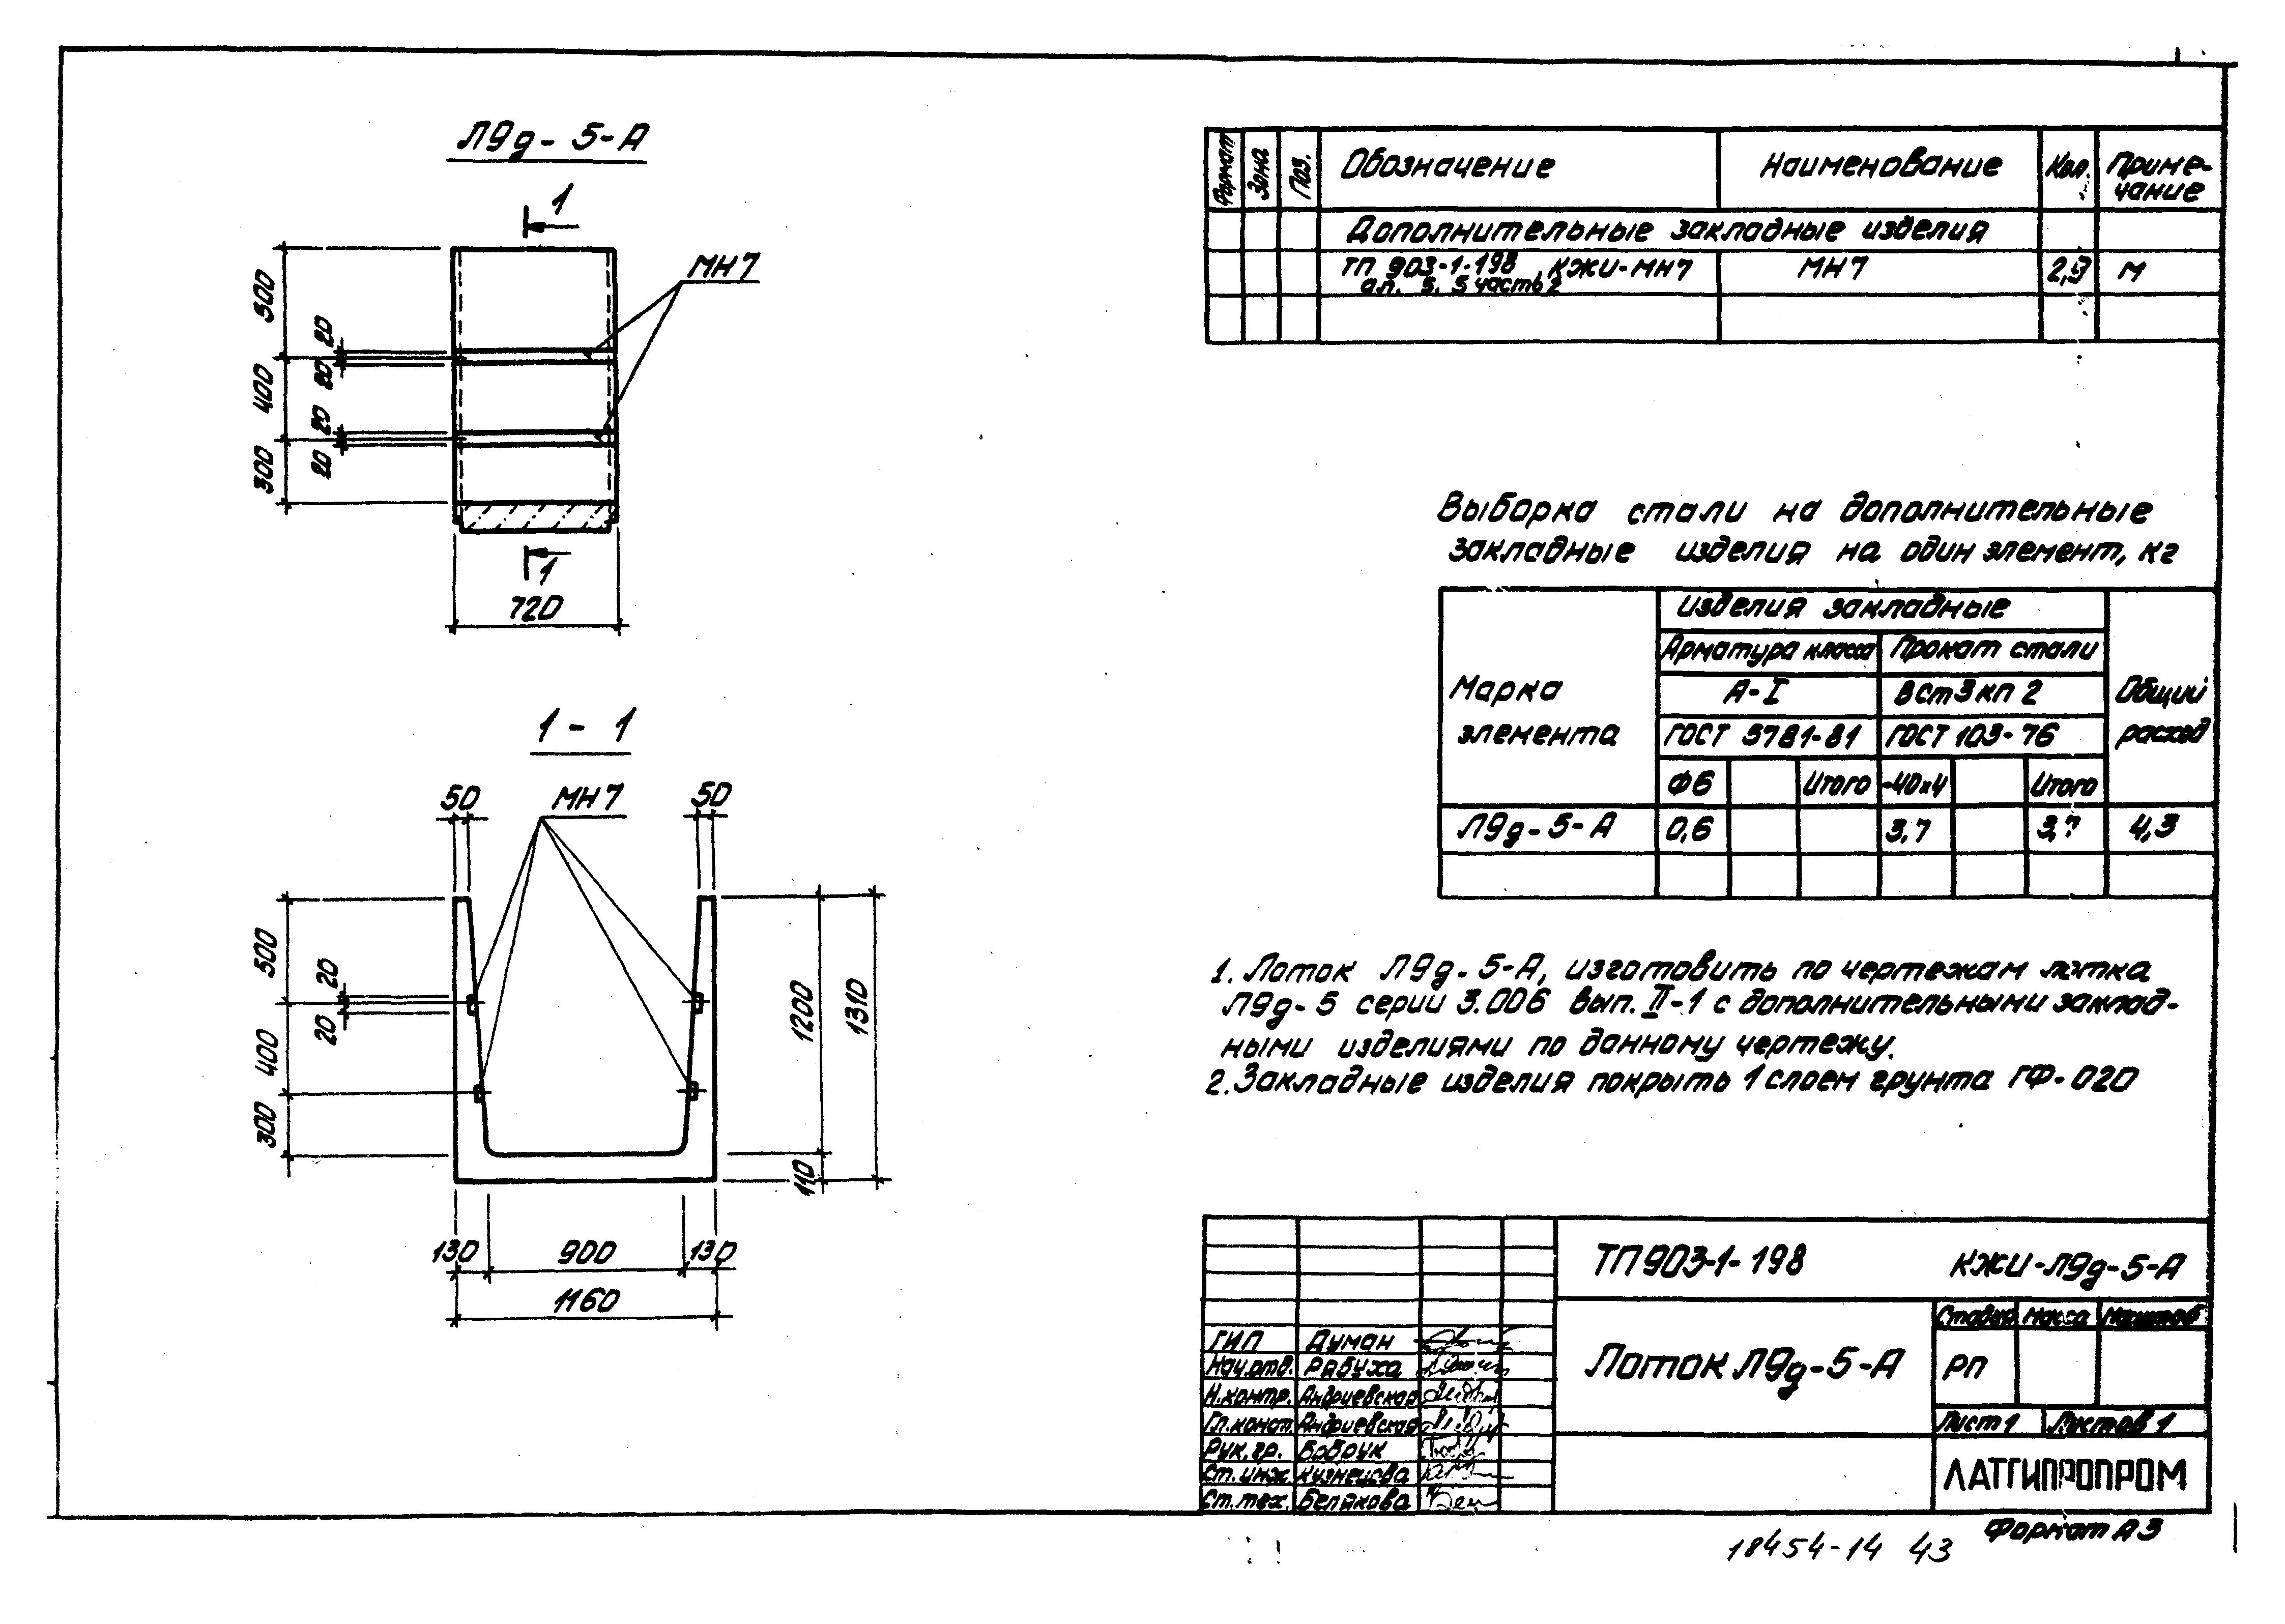 Л9д-5-А
1
МН7
500
20
20
400
20
20
300
1
720
1 - 1
50
МН7
50
500
20
20
400
300
1200
1310
110
130
900
130
1160
Формат
Зона
Поз.
Обозначение
Наименование
Кол.
Приме-
чание
Дополнительные закладные изделия
ТП 903-1-198, КЖИ-МН7
МН7
2,9
М
ал. 5. 5 часть 2
Выборка стали на дополнительные
закладные изделия на один элемент, кг
Марка
элемента
Изделия закладные
Общий
расход
Арматура класса
Прокат стали
А-I
ВСт3кп2
ГОСТ 5781-81
ГОСТ 103-76
Ф6
Итого
-40х4
Итого
Л9д-5-А
0,6
3,7
3,7
4,3
1. Лоток Л9д-5-А, изготовить по чертежам лотка
Л9д-5 серии 3.006 вып. II-1 с дополнительными заклад-
ными изделиями по данному чертежу.
2. Закладные изделия покрыть 1 слоем грунта ГФ-020
ТП903-1-198
КЖИ-Л9д-5-А
Лоток Л9д-5-А
Стадия
Масса
Масштаб
РП
Лист 1
Листов 1
ЛАТГИПРОПРОМ
ГИП Думан
Нач.отд. Рябуха
Н.контр. Андриевская
Гл.конст. Андриевская
Рук.гр. Бобрук
Ст.инж. Кузнецова
Ст.тех. Белякова
Формат А3
18454-14 43